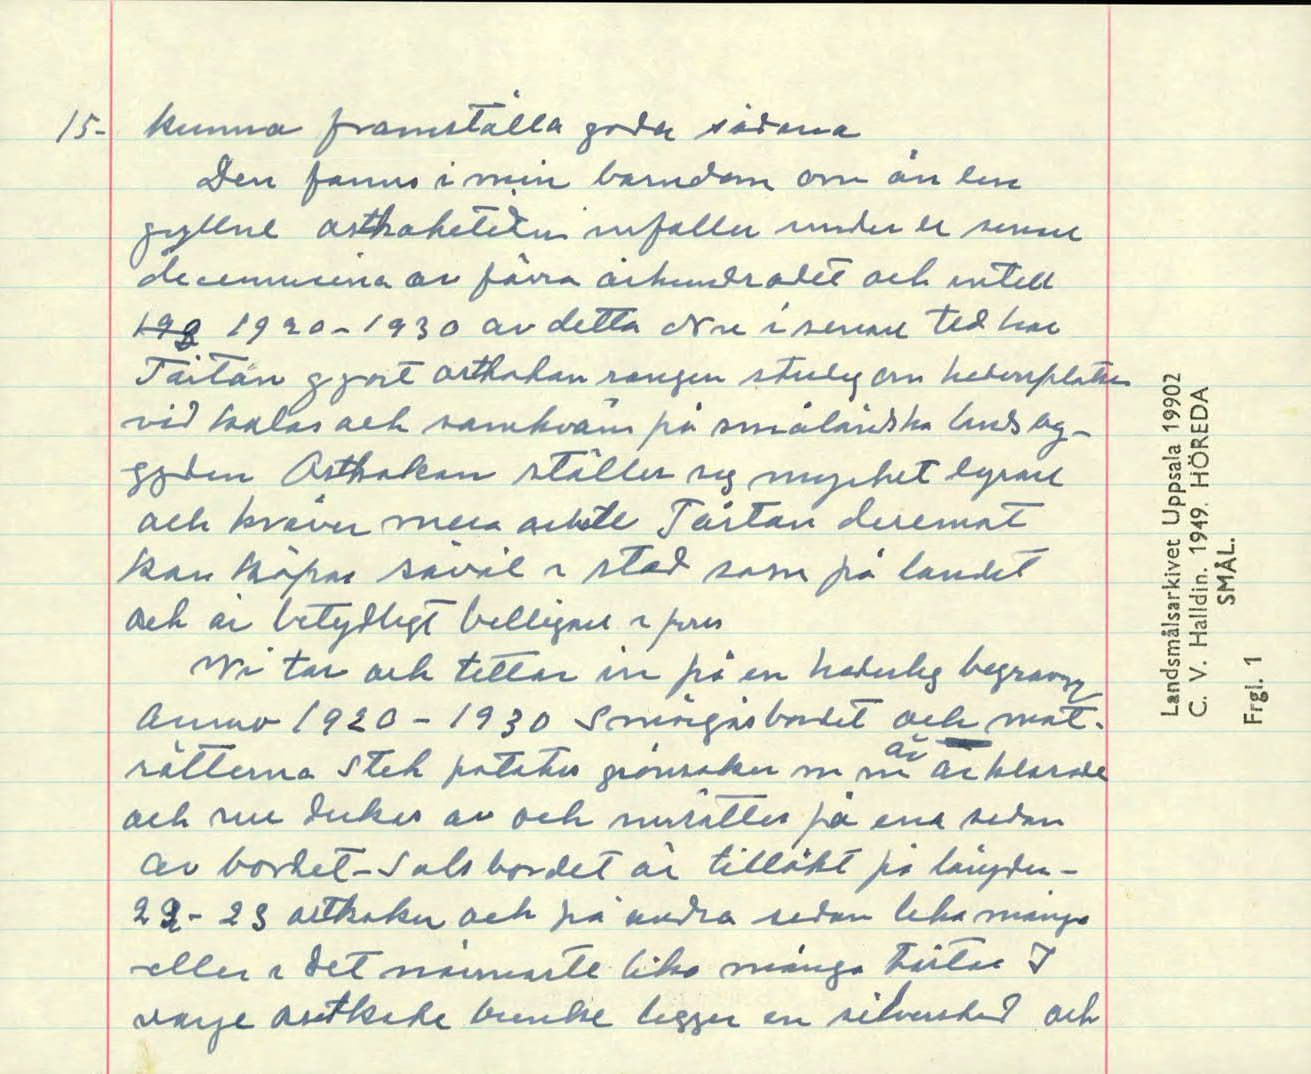 15- kunna framställa goda sådana
Den fanns i min barndom om än en
gyllne ostkaketiden infaller under de senare
decennierna av förra århundradet och intill
1920-1930 av detta Nu i senare tid har
Tårtan gjort ostkakan rangen stridig om hedersplatsen
vid kalas och samkväm på småländska landsbyg-
gden Ostkakan ställer sig mycket dyrare
och kräver mera arbete Tårtan däremot
kan köpas såväl i stad som på landet
och är betydligt billigare i pris
Vi tar och tittar in på en hederlig begravng
Anno 1920-1930 Smörgåsbordet och mat-
rätterna Stek potatis grönsaker m m är är klarade
och nu dukas av och insättes på ena sidan
av bordet - Salsbordet är tillökt på längden -
22-23 ostkakor och på andra sidan lika många
eller i det närmaste lika många tårtor I
varje ostkake bunke ligger en silversked och
Landsmålsarkivet Uppsala 19902
C. V. Halldin. 1949. HÖREDA
SMÅL.
Frgl. 1